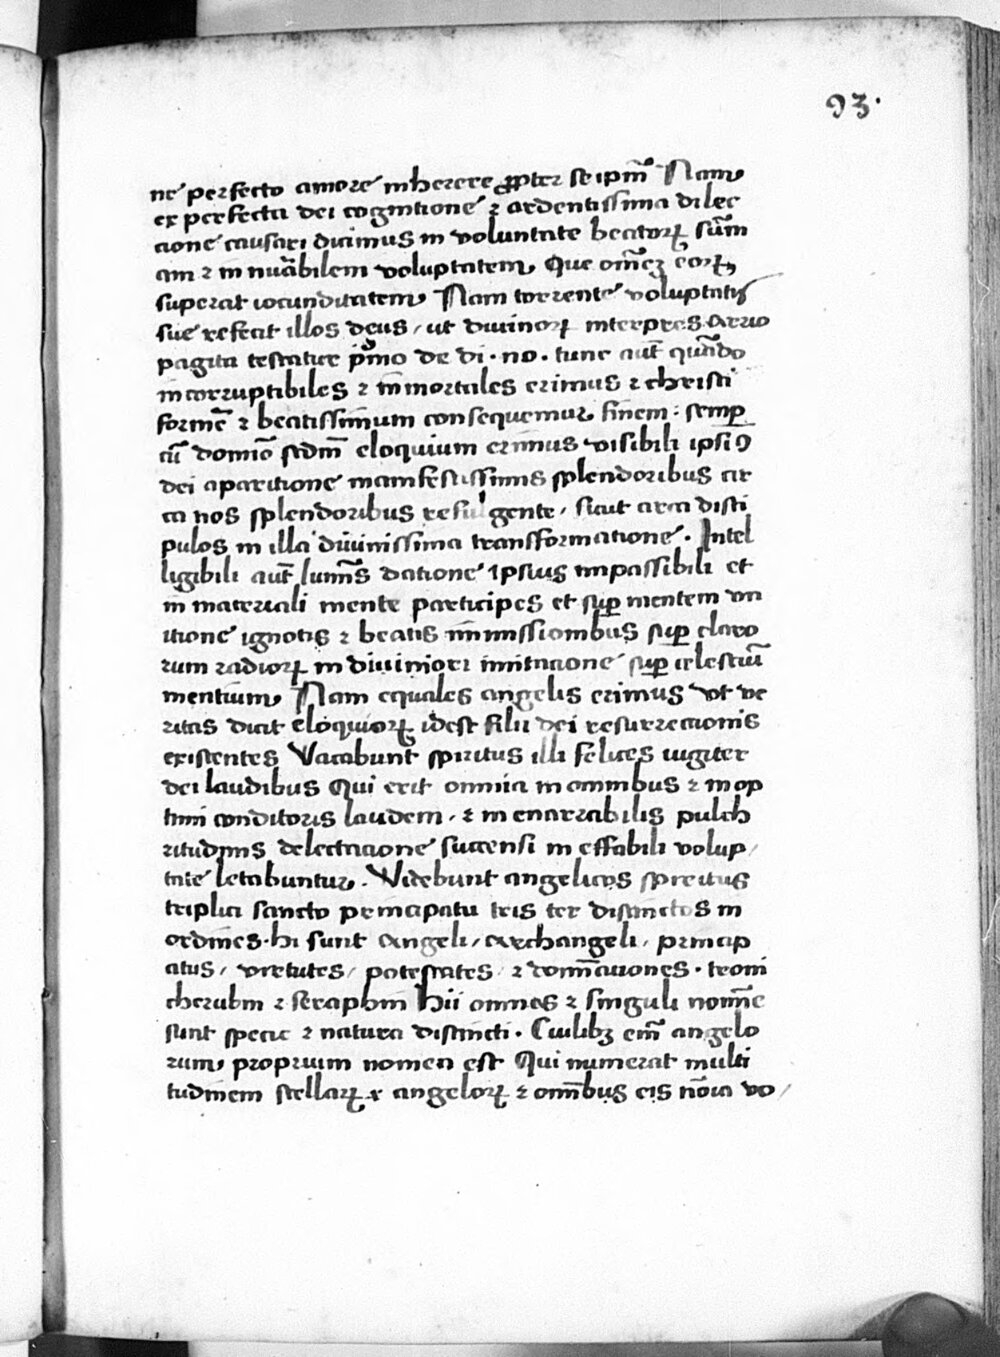 93.
ne perfecto amore inherere ꝓpter se ip̄m Nam
ex perfecta dei cognitione ⁊ ardentissima dilec
cione causari dicimus in voluntate beatoꝝ sūm
am ⁊ in nuābilem voluptatem Que om̄eꝫ eoꝝ
superat iocunditatem Nam torrente voluptatis
sue refecit illos deus / ut divinoꝝ interpres ario
pagita testatur p̊mo de di. no. tunc aut̄ quādo
incorruptibiles ⁊ immortales erimus ⁊ christi
formē ⁊ beatissimum consequemur finem : semꝑ
cū domīo scdm̄ eloquium erimus visibili ipsiꝰ
dei aparitione manifestissimis splendoribus cir
ca nos splendoribus refulgente / sicut circa disci
pulos in illa divinissima transformatione . Intel
ligibili aut̄ lum̄is datione ipsius impassibili et
in materiali mente participes et suꝑ mentem vn
itione ignotis ⁊ beatis immissionibus suꝑ claro
rum radioꝝ in diviniori imitacione suꝑ celestiū
mentium Nam equales angelis erimus vt ve
ritas dicit eloquioꝝ idest filii dei resurrectionis
existentes Vacabunt spiritus illi felices iugiter
dei laudibus Qui erit omnia in omnibus ⁊ in op
timi conditoris laudem / ⁊ in enarrabilis pulch
ritudinis delectacione succensi in effabili volup /
tate letabuntur . Videbunt angelicos spiritus
triplici sancto principatu tris ter distinctos in
ordines . hi sunt angeli / archangeli / princip
atus / virtutes / potestates / ⁊ dom̄aciones . troni
cherubin ⁊ seraphin Hii omnes ⁊ singuli nom̄e
sunt specie ⁊ natura distincti . Cuilibꝫ em̄ angelo
rum proprium nomen est Qui numerat multi
tudinem stellaꝝ ⁊ angeloꝝ ⁊ om̄bus eis nōia vo /